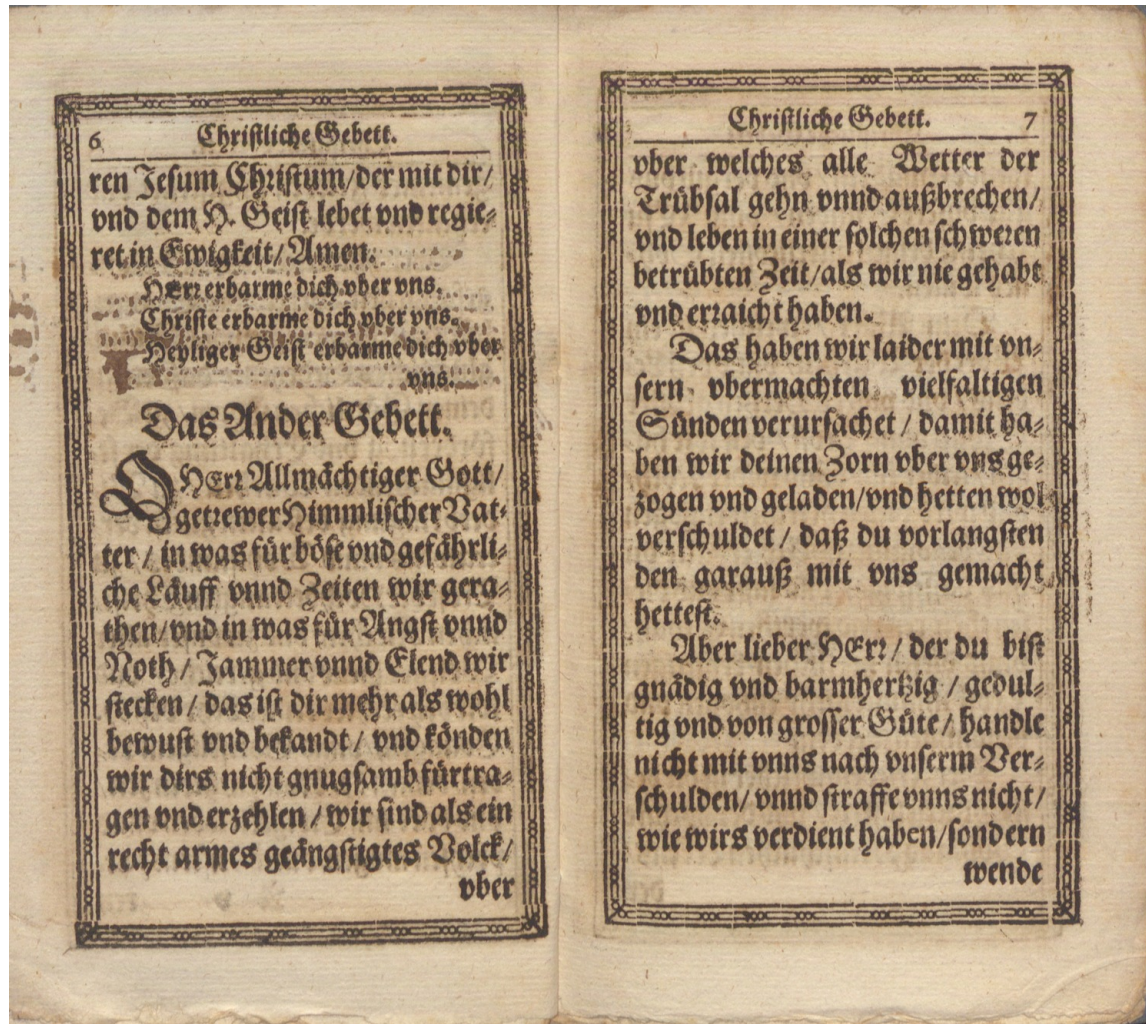 6 Christliche Gebett.
ren Jesum Christum/der mit dir/
vnd dem H. Geist lebet vnd regie-
ret in Ewigkeit/Amen.
HErr erbarme dich vber vns.
Christe erbarme dich vber vns.
Heyliger Geist erbarme dich vber
vns.
Das Ander Gebett.
O HErr Allmächtiger Gott/
getrewer Himmlischer Vat-
ter / in was für böse vnd gefährli-
che Läuff vnnd Zeiten wir gera-
then/vnd in was für Angst vnnd
Noth / Jammer vnnd Elend wir
stecken / das ist dir mehr als wohl
bewust vnd bekandt / vnd könden
wir dirs nicht gnugsamb fürtra-
gen vnd erzehlen / wir sind als ein
recht armes geängstigtes Volck/
vber
Christliche Gebett. 7
vber welches alle Wetter der
Trübsal gehn vnnd außbrechen/
vnd leben in einer solchen schweren
betrübten Zeit/als wir nie gehabt
vnd erraicht haben.
Das haben wir laider mit vn-
sern vbermachten vielfaltigen
Sünden verursachet / damit ha-
ben wir deinen Zorn vber vns ge-
zogen vnd geladen/vnd hetten wol
verschuldet / daß du vorlangsten
den garauß mit vns gemacht
hettest.
Aber lieber HErr / der du bist
gnädig vnd barmhertzig / gedul-
tig vnd von grosser Güte / handle
nicht mit vnns nach vnserm Ver-
schulden/ vnnd straffe vnns nicht/
wie wirs verdient haben/sondern
wende